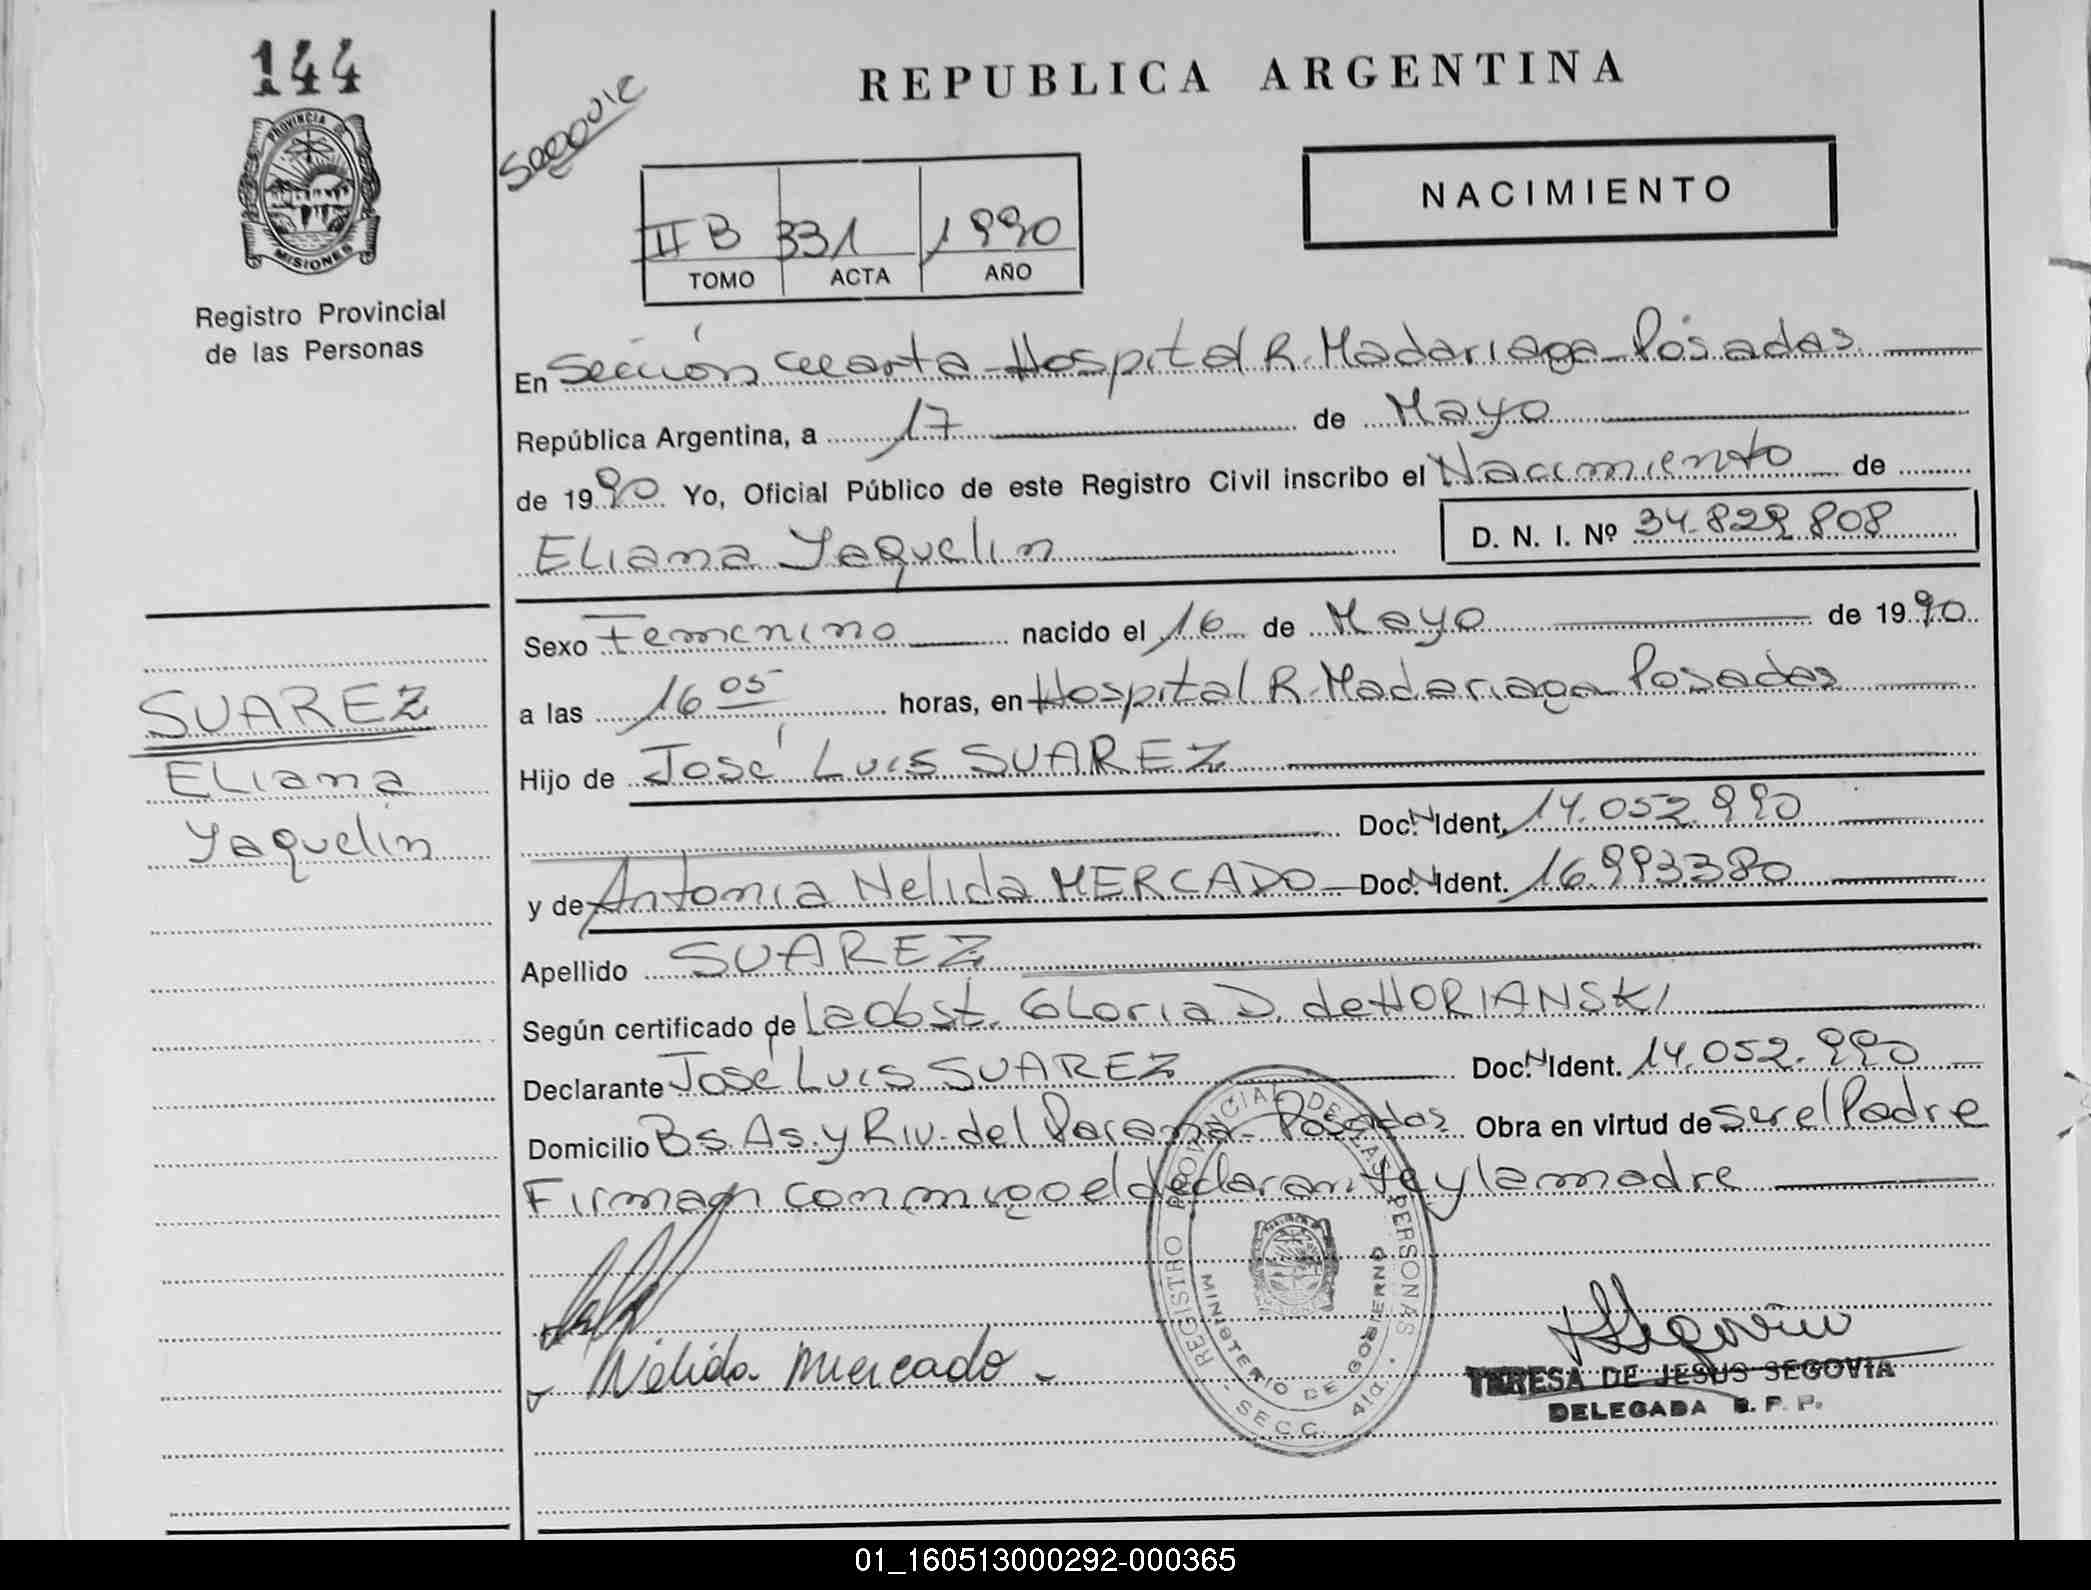 144
PROVINCIA DE
MISIONES
Registro Provincial
de las Personas
REPUBLICA ARGENTINA
NACIMIENTO
II B 331 1990
TOMO ACTA AÑO
En Sección cuarta Hospital R. Madariaga Posadas
República Argentina, a 17 de Mayo
de 1990 Yo, Oficial Público de este Registro Civil inscribo el Nacimiento de
ELiana Yaquelin D. N. I. Nº 34.829.808
Sexo Femenino nacido el 16 de Mayo de 1990
a las 16 05 horas, en Hospital R. Madariaga Posadas
SUAREZ
ELiana
Yaquelin
Hijo de José Luis SUAREZ
Doc. N. Ident. 14.052.990
y de Antonia Nelida MERCADO Doc. N. Ident. 16.993380
Apellido SUAREZ
Según certificado de La obst. GLoria D. de HORIANSKI
Declarante José Luis SUAREZ Doc. N. Ident. 14.052.990
Domicilio Bs. As. y Riv. del Parana - Posadas Obra en virtud de ser el Padre
Firman conmigo el declarante y la madre
REGISTRO PROVINCIAL DE LAS PERSONAS
MINISTERIO DE GOBIERNO
SECC. 4ta.
Nélida Mercado
Segovia
TERESA DE JESUS SEGOVIA
DELEGADA R. P. P.
01_160513000292-000365